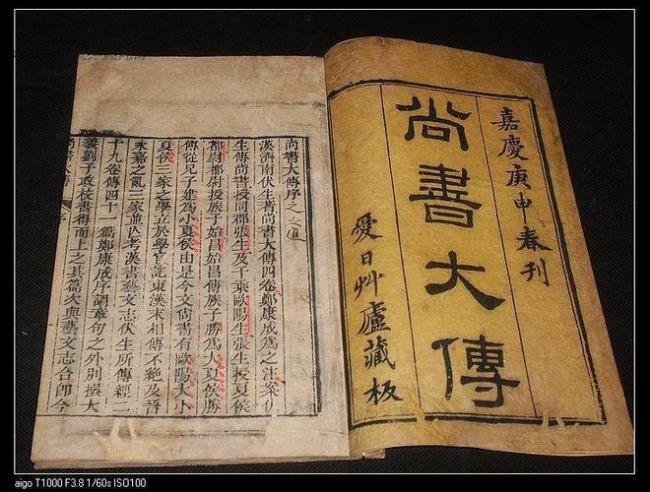 嘉慶庚申春刊
尚書大傳
愛日艸廬藏板
尚書大傳序
漢濟南伏生著尚書大傳四卷鄭康成為之注案伏
生傳尚書授同郡張生及千乗歐陽生張生授夏侯
都尉都尉授族子始昌始昌傳族子勝為大夏侯勝
傳從兄子建為小夏侯由是今文尚書有歐陽大小
夏侯三家之學立於學官訖東漢末相傳不絶及晉
永嘉之亂三家並亡考漢書藝文志伏生所傳經二
十九卷傳四十一篇鄭康成序謂章句之外別撰大
義劉子政校書得而上之其篇次與藝文志合即今
aigo T1000 F3.8 1/60s ISO100